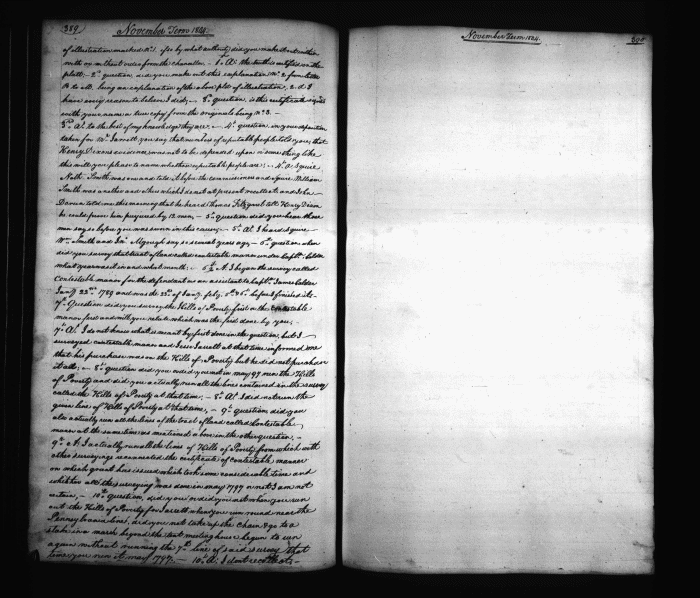 389
November Term 1824.
of illustration marked No. 1. if so by what authority did you make it out either
with or without orders from the chancellor. - 1. A. the truth is certified on the
platt; - 2d question, did you make out this explanation No. 2 from letter
A to M. being an explanation of the above plot of illustration, 2. d. I
have every reason to believe I did; - 3d question, is this certificate signed
with your name a true copy from the originals being No. 3. -
3d A. to the best of my knowledge they are. - 4th question in your deposition
taken for Mr. Jarrett you say that numbers of reputable people told you, that
Henry Dixons evidence was not to be depended upon or some thing like
this will you please to name who these reputable people are; - 4th A. Squire
Nath. Smith was one and told it before the commissioners and squire William
Smith was another and others which I do not at present recollect and John
told me this morning that he heard Thomas Fitzgerel tell Henry Dixon
he could prove him perjured by 12 men, - 5th question did you hear these
men say so before you was sworn in this cause; - 5th A. I heard Squire
Wm. Smith and Jno. say so several years ago, - 6th question when
did you survey that tract of land called contestable manor under Captn. Calder
what year was it in and what month. - 6th A. I began the survey called
Contestable manor for the defendant as an assistant to Captn. James Calder
Jany 22nd 1789 and was the 23d of Jany. feby. 5th & 6th before I finished it -
7th Question did you survey the Hills of Poverty first or the contestable
manor first and will you relate which was the first done by you; -
7th A. I do not know what is meant by first done in the question, but I
surveyed contestable manor and Jesse Jarrett at that time informed me
that his purchase was on the Hills of Poverty but he did not purchase
it all; - 8th question did you or did you not in may 97 run the Hills
of Poverty and did you actually run all the lines contained in the survey
called the Hills of Poverty at that time, - 8th A. I did not run the
given line of Hills of Poverty at that time, - 9th question did you
also actually run all the lines of the tract of land called Contestable
manor at the same time as mentioned above in the other question. -
9th A. I actually run all the lines of Hills of Poverty from which with
other surveyings as corrected the certificate of contestable manor
on which grant has issued which took some considerable time and
whether all the surveying was done in may 1797 or not I am not
certain, - 10th Question, did you or did you not when you run
out the Hills of Poverty for Jarrett when you run round near the
Pennsylvania line, did you not take up the chain & go to a
stake in a marsh beyond the meeting house & began to run
again without running the 7th line of said survey that
time you run it may 1797. - 10th A. I dont recollect -
November Term 1824.
390